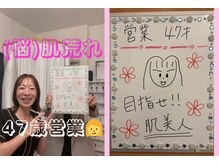 (悩)肌荒れ
47歳営業
営業 47才
目指せ!!
肌美人